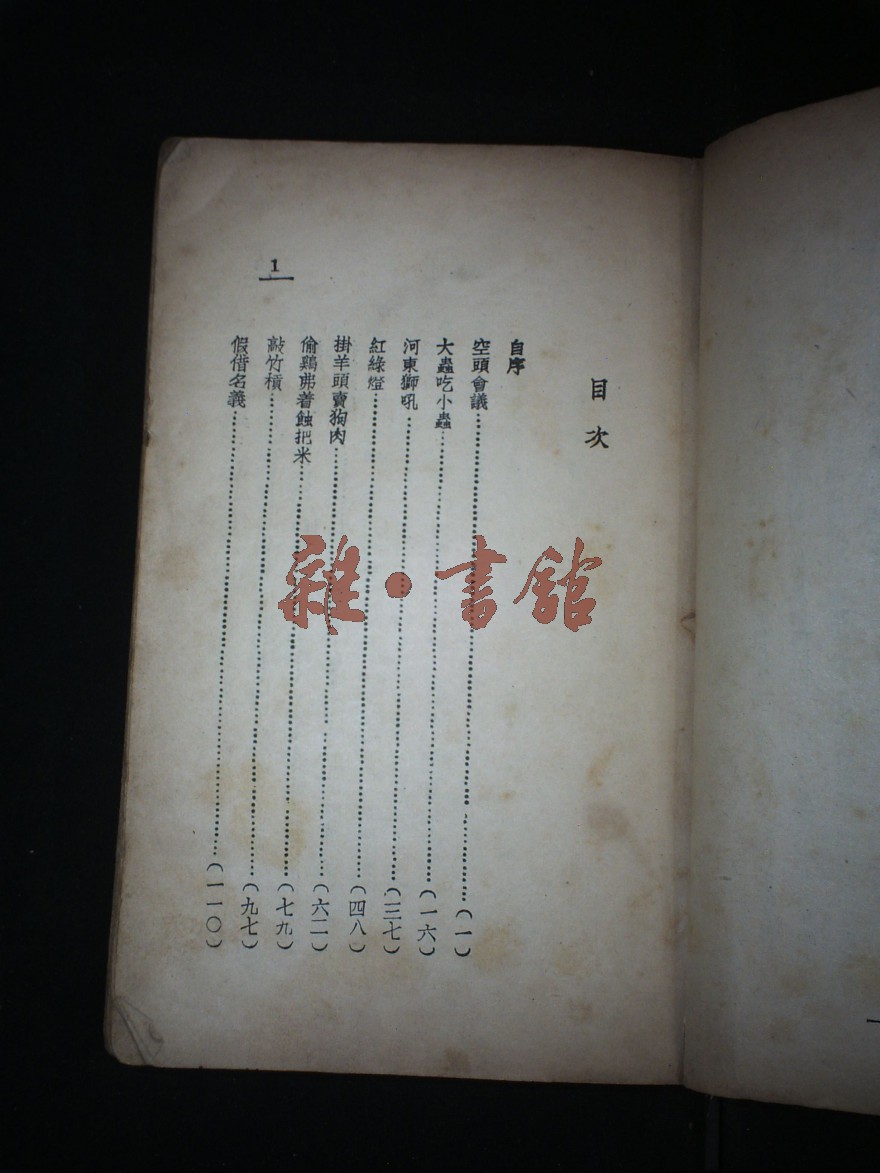 目次
自序
空頭會議…………(一)
大蟲吃小蟲…………(一六)
河東獅吼…………(三七)
紅綠燈…………(四八)
掛羊頭賣狗肉…………(六二)
偷鷄弗着蝕把米…………(七九)
敲竹槓…………(九七)
假借名義…………(一一〇)
1
雜·書館